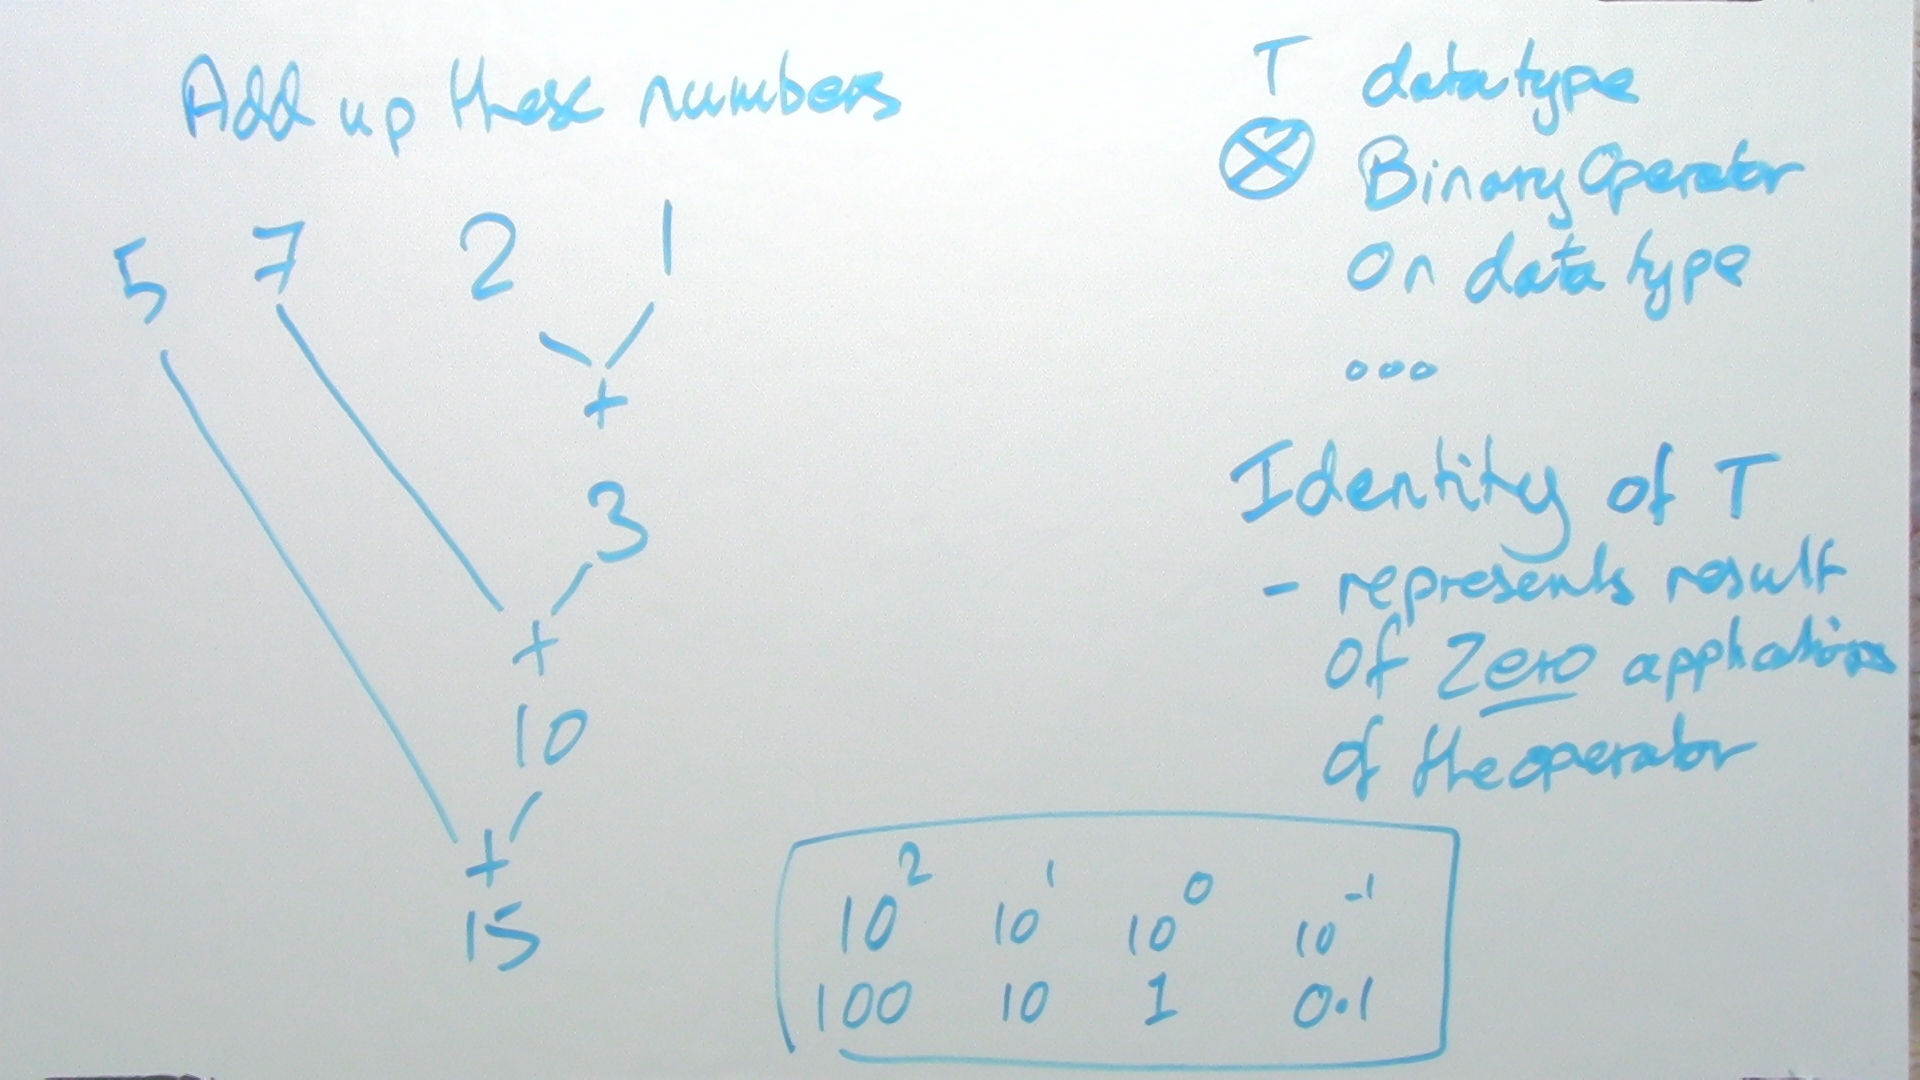 Add up these numbers
5 7 2 1
+
3
+
10
+
15
T datatype
⊗ Binary Operator
on data type
...
Identity of T
- represents result
of zero applications
of the operator
10² 10¹ 10⁰ 10⁻¹
100 10 1 0.1